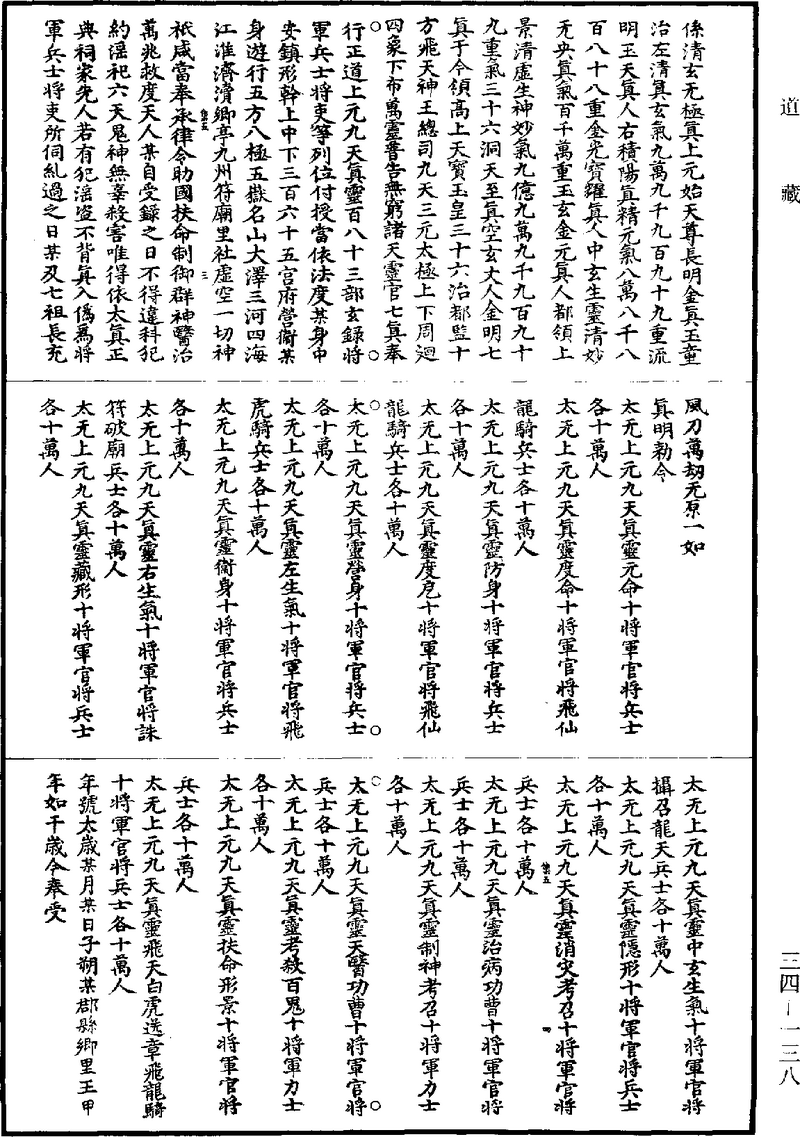 道藏
三四－一三八
係清玄无極眞上元始天尊長明金眞玉童
治左清眞玄氣九萬九千九百九十九重流
明玉天眞人右積陽眞精元氣八萬八千八
百八十八重金光寳耀眞人中玄生靈清妙
无央眞氣百千萬重玉玄金元眞人都領上
景清虛生神妙氣九億九萬九千九百九十
九重氣三十六洞天至眞空玄丈人金明七
眞于今領高上天寳玉皇三十六治都監十
方飛天神王總司九天三元太極上下周迴
四象下布萬靈普告無窮諸天靈官七眞奉
行正道上元九天眞靈百八十三部玄錄將
軍兵士將吏等列位付授當依法度某身中
安鎮形幹上中下三百六十五宮府營衛某
身遊行五方八極五嶽名山大澤三河四海
江淮濟瀆鄉亭九州符廟里社虛空一切神
祇咸當奉承律令助國扶命制御群神醫治
萬兆救度天人某自受錄之日不得違科犯
約淫祀六天鬼神無辜殺害唯得依太眞正
典祠家先人若有犯淫盗不背眞入僞爲將
軍兵士將吏所伺糺過之日某及七祖長充
風刀萬劫无原一如
眞明勑令
太无上元九天眞靈元命十將軍官將兵士
各十萬人
太无上元九天眞靈度命十將軍官將飛仙
龍騎兵士各十萬人
太无上元九天眞靈防身十將軍官將兵士
各十萬人
太无上元九天眞靈度厄十將軍官將飛仙
龍騎兵士各十萬人
太无上元九天眞靈營身十將軍官將兵士
各十萬人
太无上元九天眞靈左生氣十將軍官將飛
虎騎兵士各十萬人
太无上元九天眞靈衛身十將軍官將兵士
各十萬人
太无上元九天眞靈右生氣十將軍官將誅
符破廟兵士各十萬人
太无上元九天眞靈藏形十將軍官將兵士
各十萬人
太无上元九天眞靈中玄生氣十將軍官將
攝召龍天兵士各十萬人
太无上元九天眞靈隱形十將軍官將兵士
各十萬人
太无上元九天眞靈消灾考召十將軍官將
兵士各十萬人
太无上元九天眞靈治病功曹十將軍官將
兵士各十萬人
太无上元九天眞靈制神考召十將軍力士
各十萬人
太无上元九天眞靈天醫功曹十將軍官將
兵士各十萬人
太无上元九天眞靈考殺百鬼十將軍力士
各十萬人
太无上元九天眞靈扶命形景十將軍官將
兵士各十萬人
太无上元九天眞靈飛天白虎送章飛龍騎
十將軍官將兵士各十萬人
年號太歲某月某日子朔某郡縣鄉里王甲
年如干歲今奉受